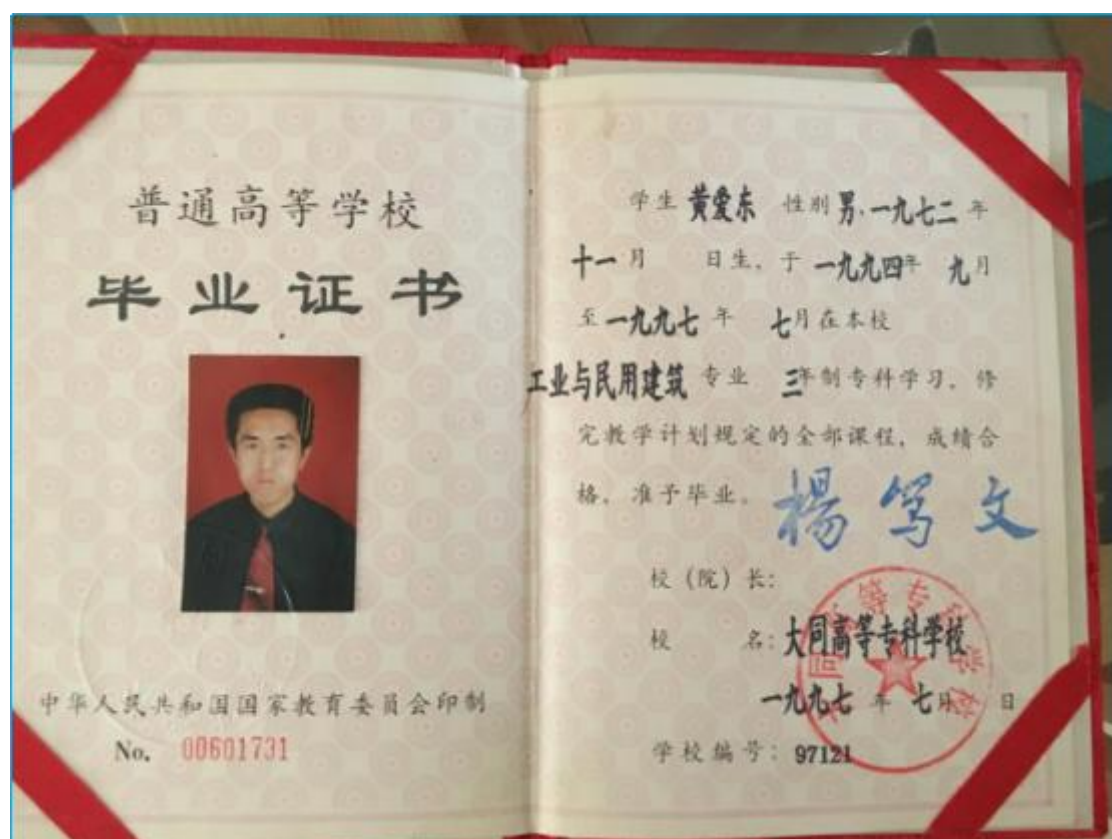 普通高等学校
毕业证书
中华人民共和国国家教育委员会印制
No. 00601731
学生 黄爱东 性别 男,一九七二 年
十一 月 日生, 于 一九九四 年 九 月
至 一九九七 年 七 月在本校
工业与民用建筑 专业 三 年制专科学习, 修
完教学计划规定的全部课程, 成绩合
格, 准予毕业。
杨笃文
校 (院) 长:
校 名: 大同高等专科学校
一九九七 年 七 月 日
学校编号: 97121
大同高等专科学校